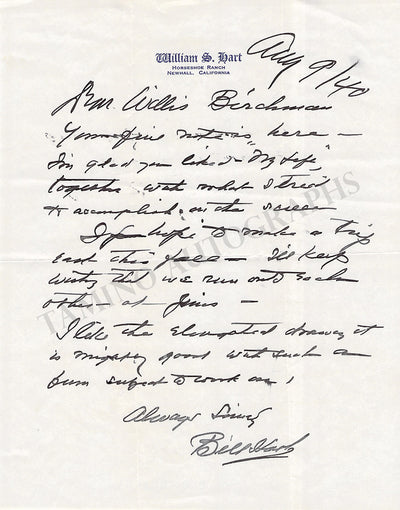 William S. Hart
Horseshoe Ranch
Newhall, California
Aug 9/40
Dear Willis Birchman
Your fine note is here —
I'm glad you liked "My Life",
together with what I tried
to accomplish on the screen
I hope to make a trip
east this — I'll keep
we run into each
other at —
I like the drawing it
is mighty good with such a
bum subject to work on!
Always Sincy
Bill Hart
TAMINO AUTOGRAPHS